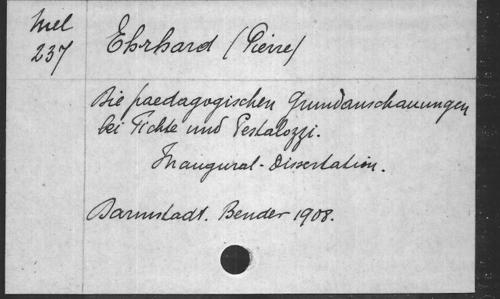 Mel
237
Ehrhard (Pierre)
Die paedagogischen Grundanschauungen
bei Fichte und Pestalozzi.
Inaugural-Dissertation.
Darmstadt. Bender 1908.